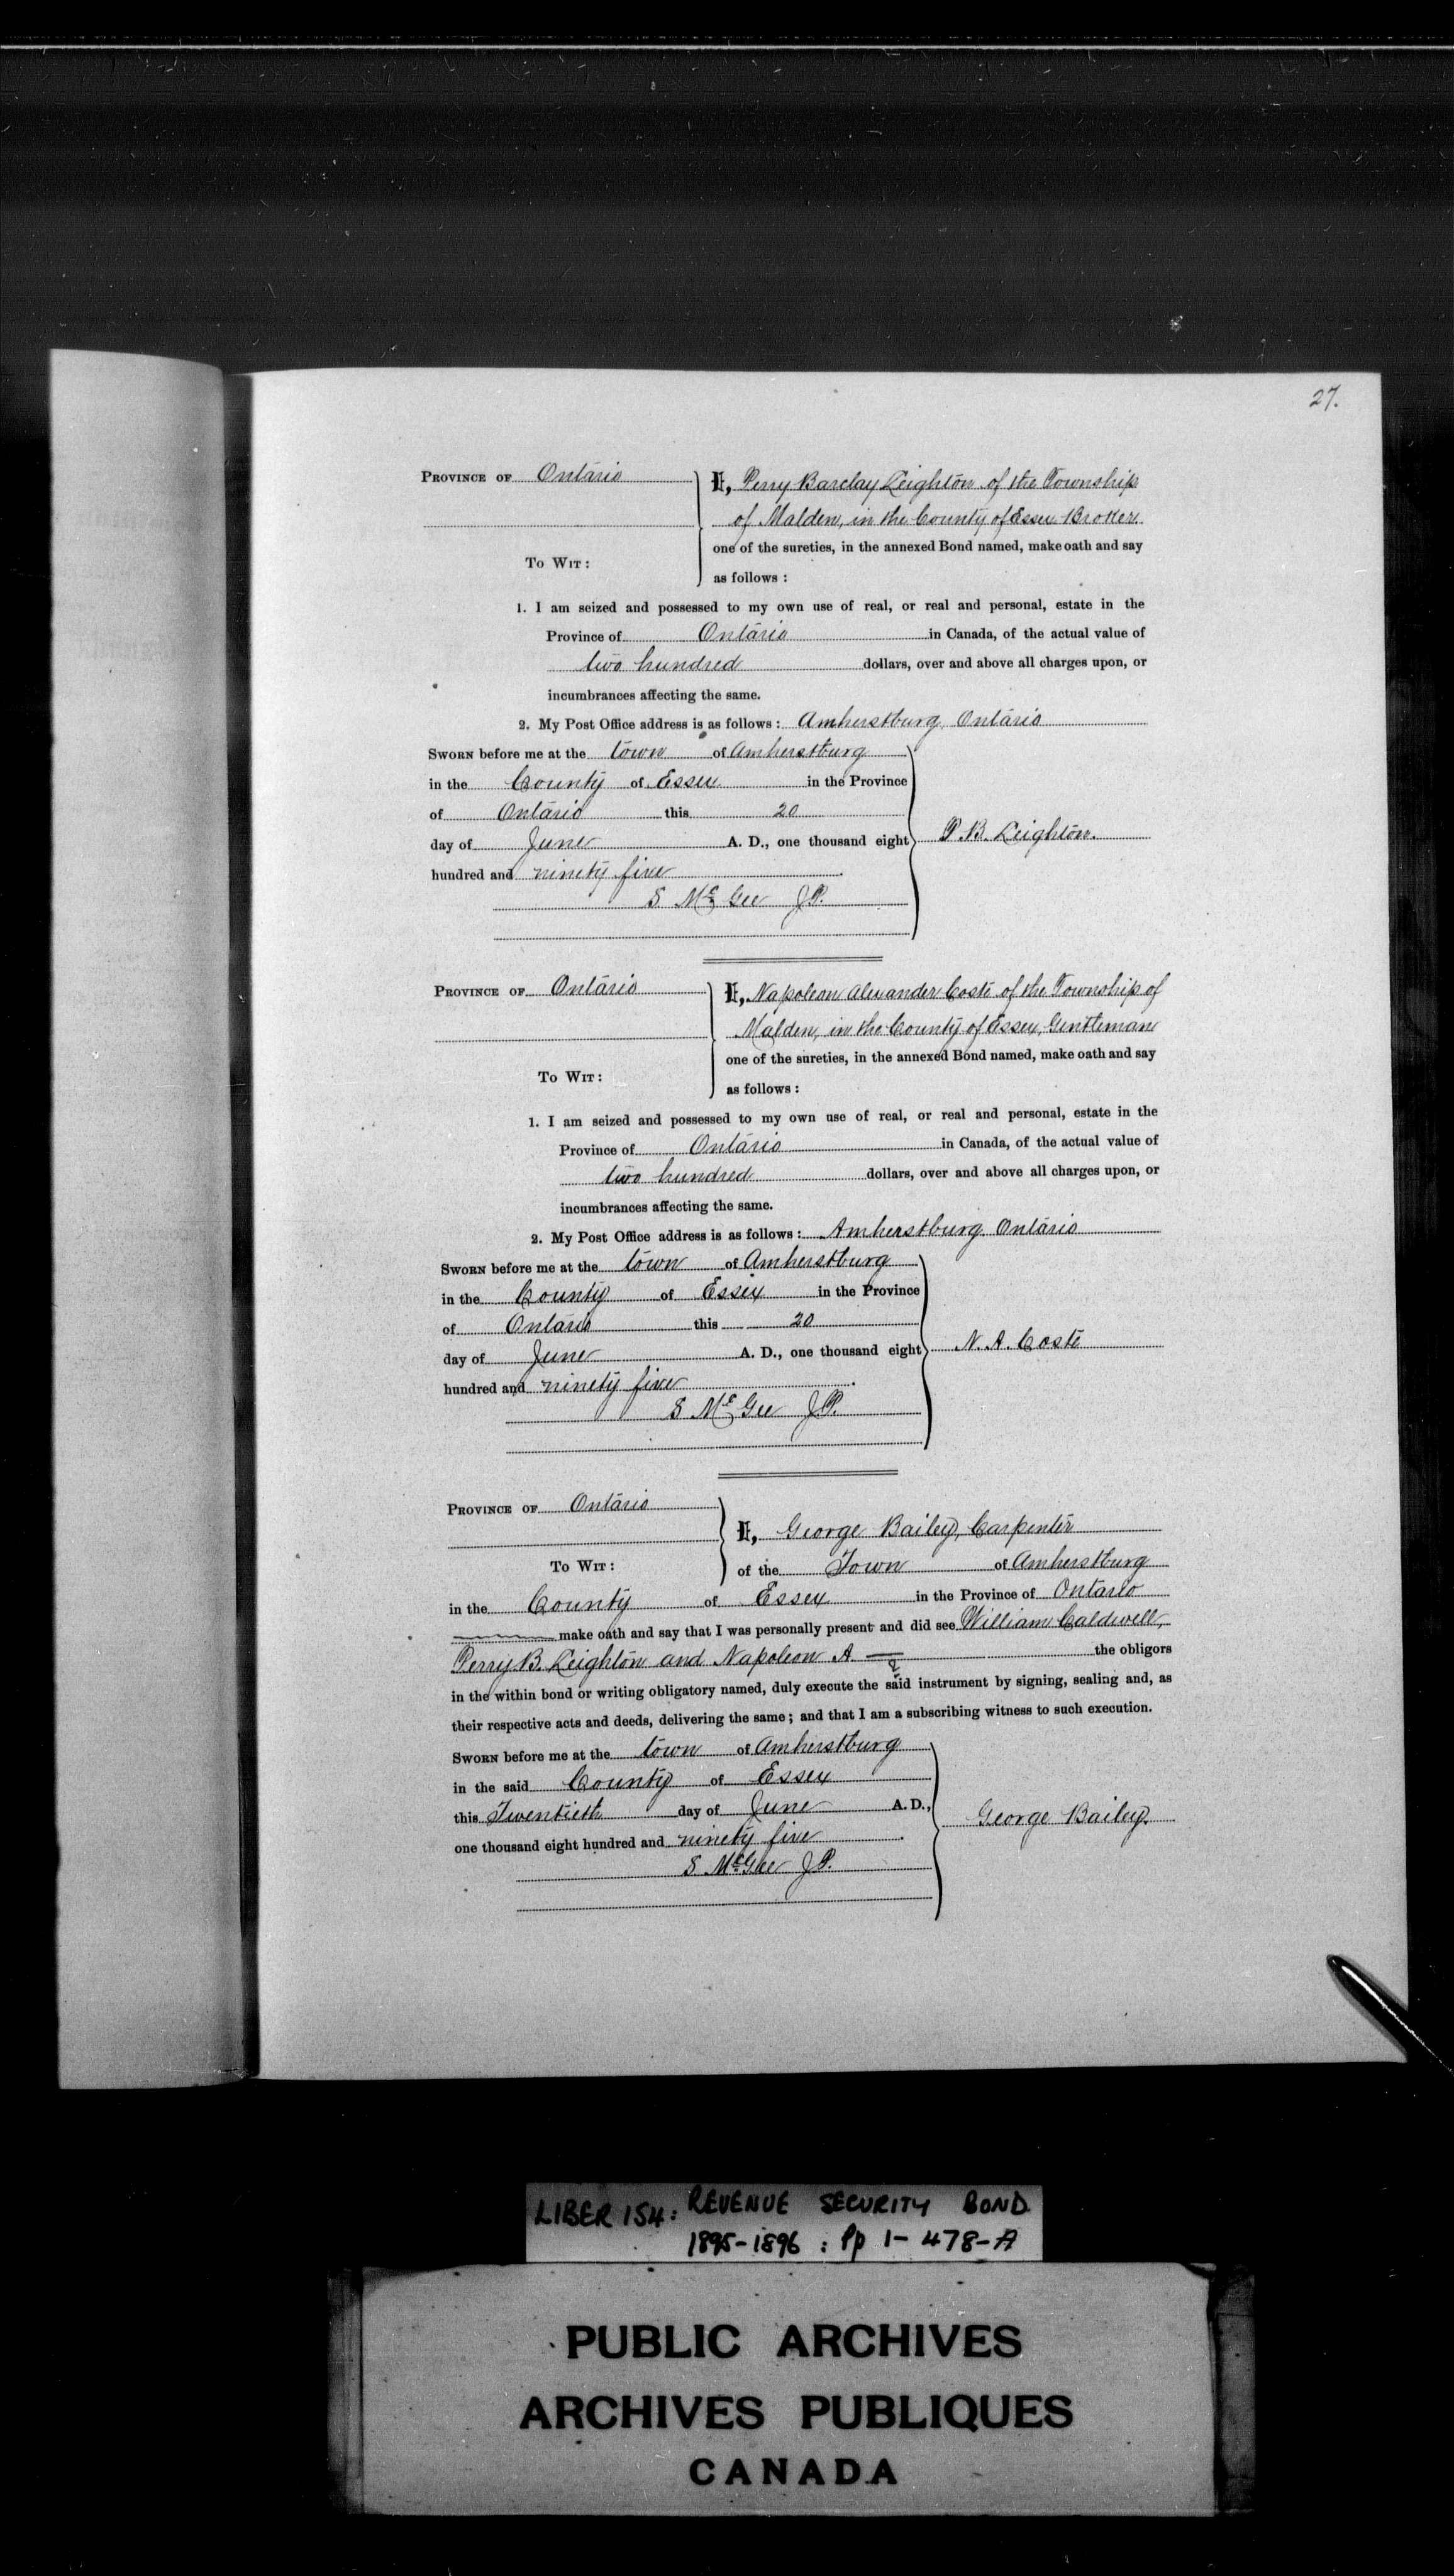 27.
PROVINCE OF Ontario
I, Perry Barclay Leighton of the Township
of Malden, in the County of Essex Broker.
one of the sureties, in the annexed Bond named, make oath and say
TO WIT:
as follows:
1. I am seized and possessed to my own use of real, or real and personal, estate in the
Province of Ontario in Canada, of the actual value of
two hundred dollars, over and above all charges upon, or
incumbrances affecting the same.
2. My Post Office address is as follows: Amherstburg, Ontario
SWORN before me at the town of Amherstburg
in the County of Essex in the Province
of Ontario this 20
day of June A. D., one thousand eight
P. B. Leighton.
hundred and ninety five
S McGee J.P.
PROVINCE OF Ontario
I, Napoleon Alexander Coste of the Township of
Malden, in the County of Essex, Gentleman
one of the sureties, in the annexed Bond named, make oath and say
TO WIT:
as follows:
1. I am seized and possessed to my own use of real, or real and personal, estate in the
Province of Ontario in Canada, of the actual value of
two hundred dollars, over and above all charges upon, or
incumbrances affecting the same.
2. My Post Office address is as follows: Amherstburg Ontario
SWORN before me at the town of Amherstburg
in the County of Essex in the Province
of Ontario this 20
day of June A. D., one thousand eight
N. A. Coste
hundred and ninety five
S McGee J.P.
PROVINCE OF Ontario
I, George Bailey, Carpenter
TO WIT:
of the Town of Amherstburg
in the County of Essex in the Province of Ontario
make oath and say that I was personally present and did see William Caldwell,
Perry B. Leighton and Napoleon A — the obligors
in the within bond or writing obligatory named, duly execute the said instrument by signing, sealing and, as
their respective acts and deeds, delivering the same; and that I am a subscribing witness to such execution.
SWORN before me at the town of Amherstburg
in the said County of Essex
this Twentieth day of June A. D.,
George Bailey.
one thousand eight hundred and ninety five
S McGee J.P.
LIBER 154: REVENUE SECURITY BOND
1895-1896 : Pp 1-478-A
PUBLIC ARCHIVES
ARCHIVES PUBLIQUES
CANADA